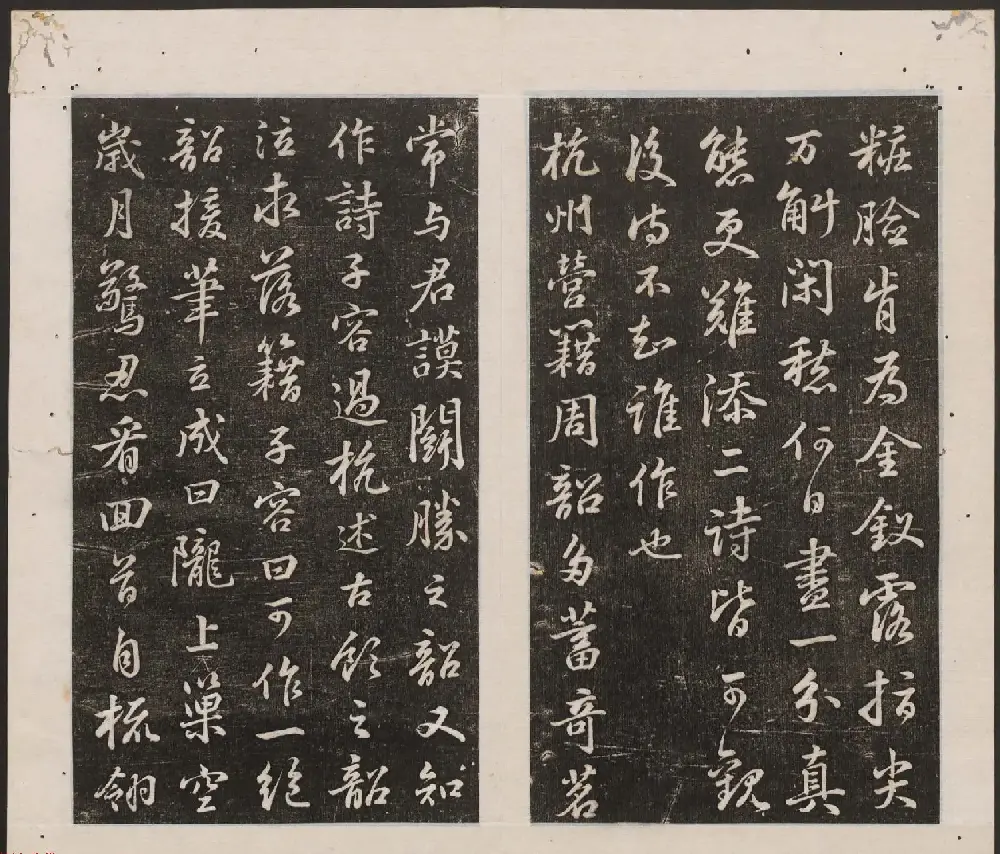 粧臉肯為金釵露指尖
万斛閑愁何日盡一分真
態更難添二詩皆可觀
後詩不知誰作也
杭州營籍周韶多蓄奇茗
常与君謨鬬勝之韶又知
作詩子容過杭述古飲之韶
泣求落籍子容曰可作一絕
韶援筆立成曰隴上巢空
歲月驚忍看回首自梳翎